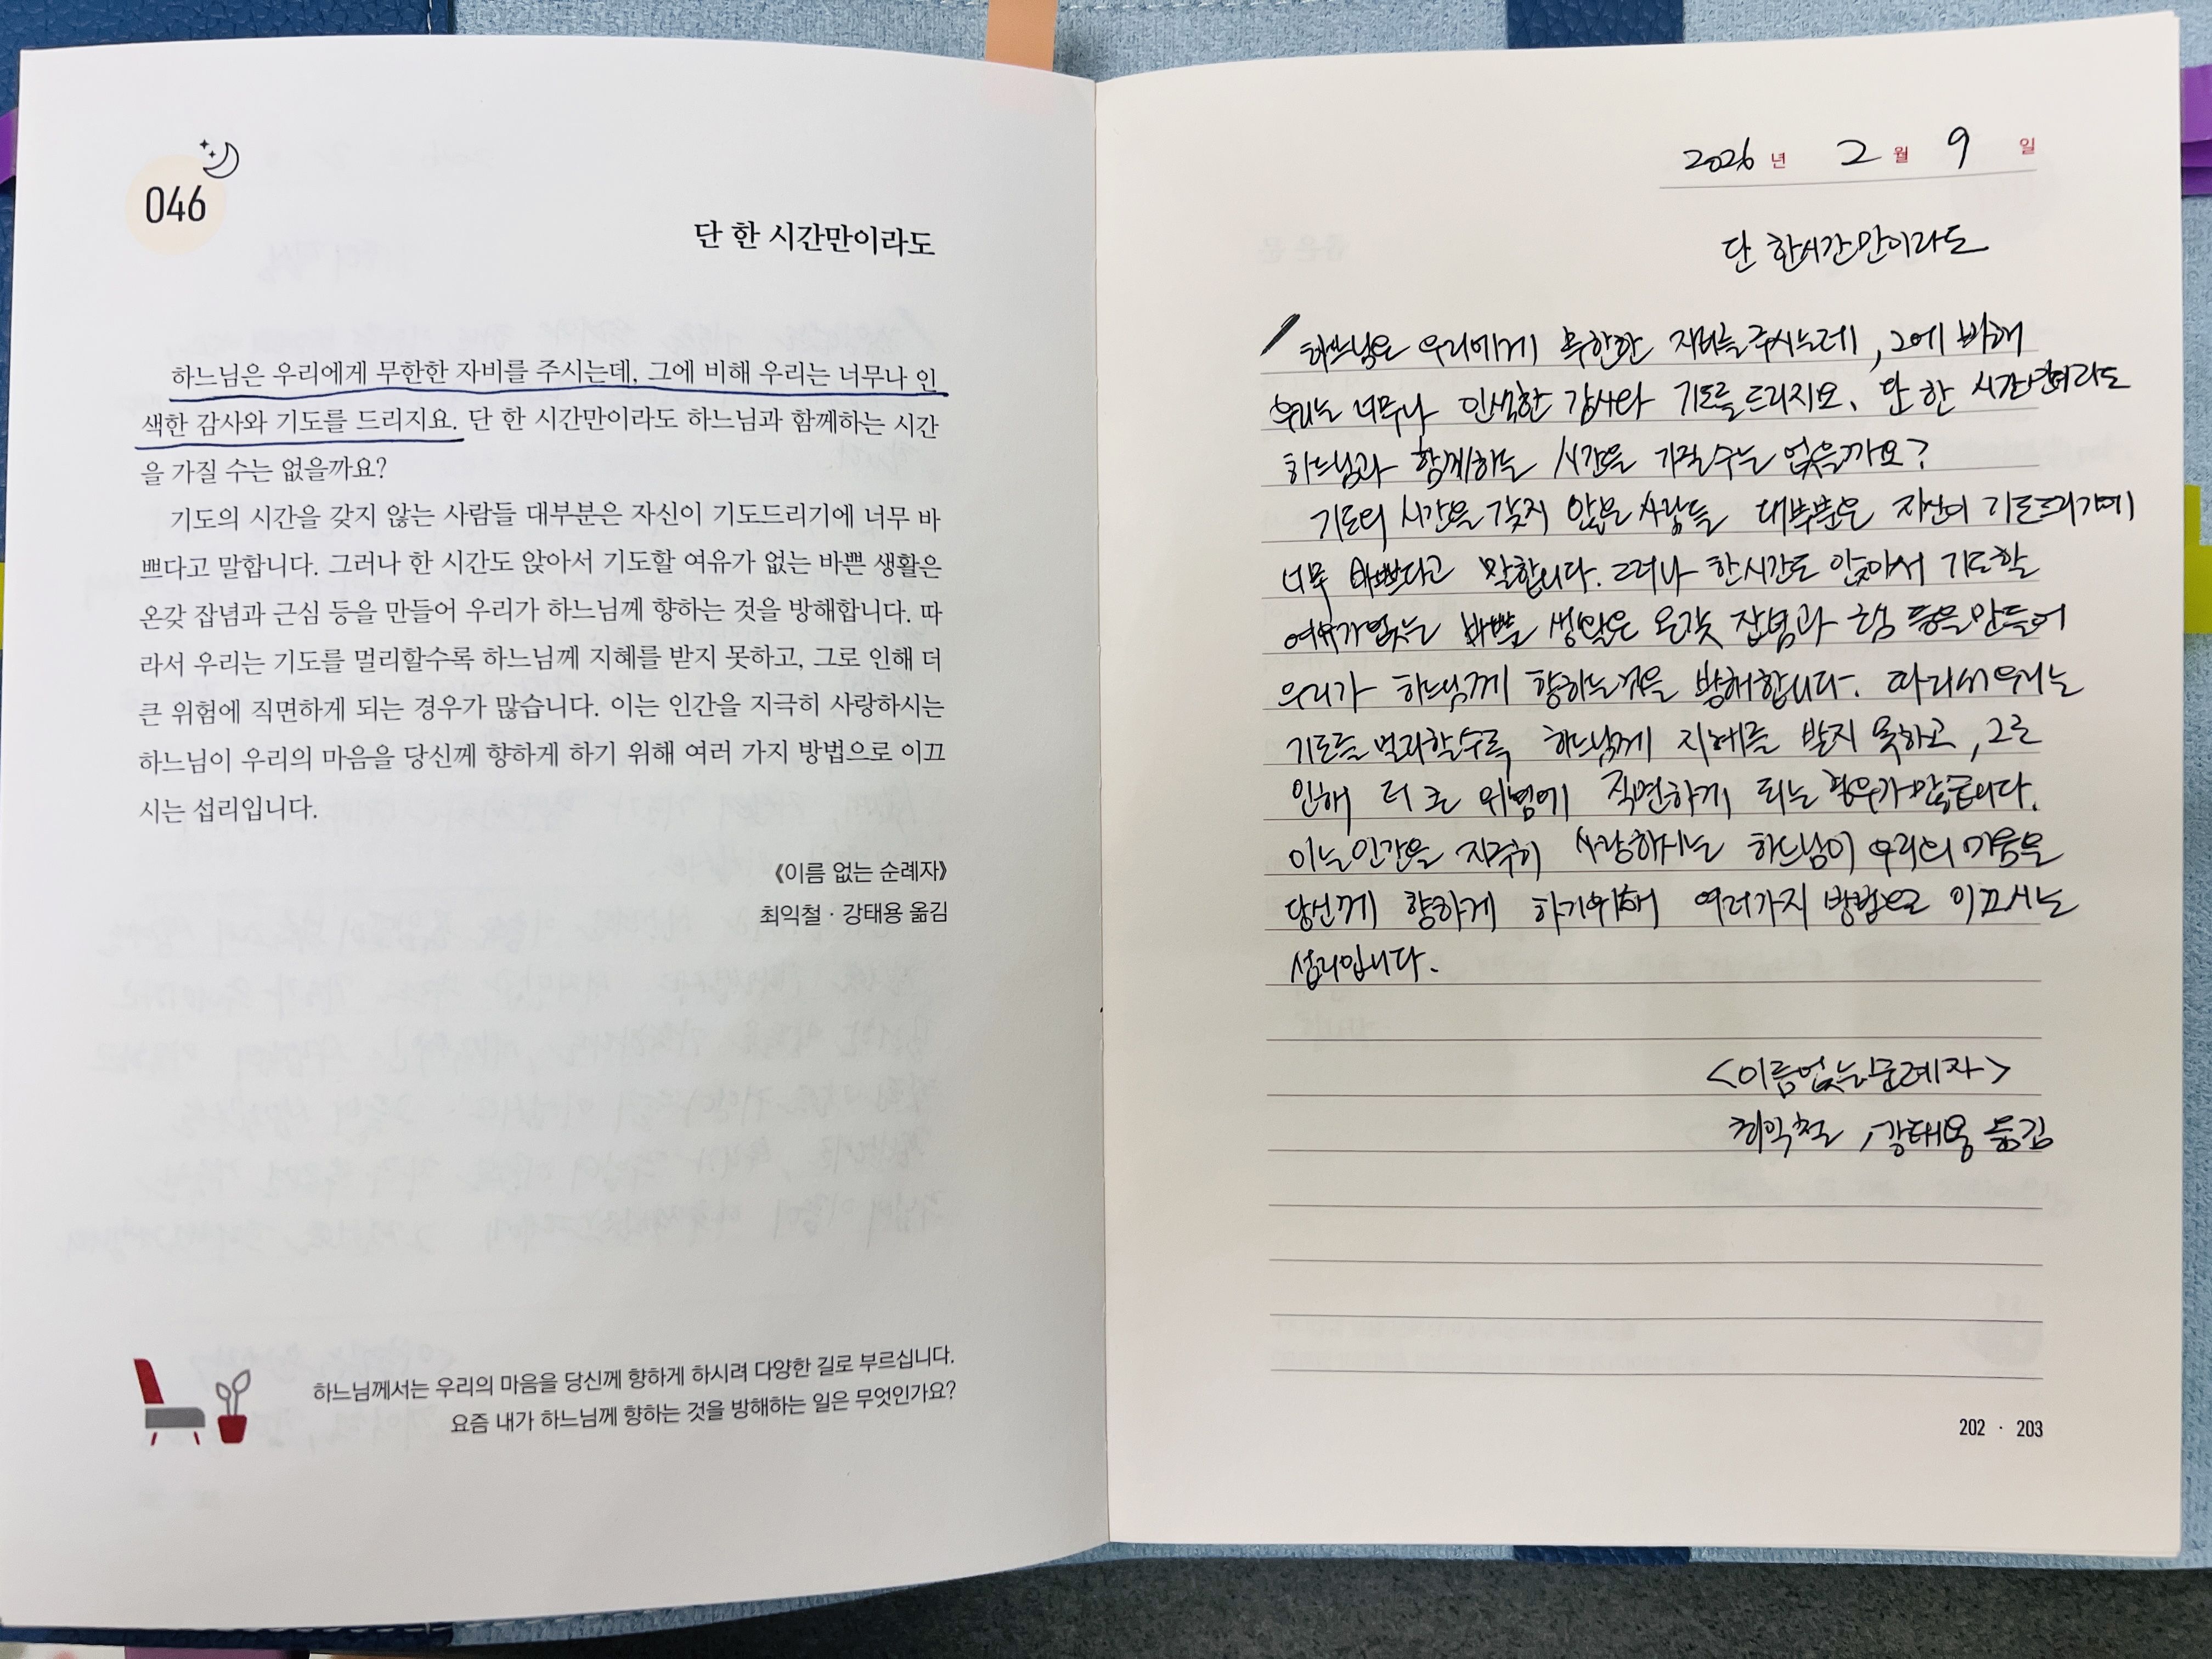 046
단 한 시간만이라도
하느님은 우리에게 무한한 자비를 주시는데, 그에 비해 우리는 너무나 인
색한 감사와 기도를 드리지요. 단 한 시간만이라도 하느님과 함께하는 시간
을 가질 수는 없을까요?
기도의 시간을 갖지 않는 사람들 대부분은 자신이 기도드리기에 너무 바
쁘다고 말합니다. 그러나 한 시간도 앉아서 기도할 여유가 없는 바쁜 생활은
온갖 잡념과 근심 등을 만들어 우리가 하느님께 향하는 것을 방해합니다. 따
라서 우리는 기도를 멀리할수록 하느님께 지혜를 받지 못하고, 그로 인해 더
큰 위험에 직면하게 되는 경우가 많습니다. 이는 인간을 지극히 사랑하시는
하느님이 우리의 마음을 당신께 향하게 하기 위해 여러 가지 방법으로 이끄
시는 섭리입니다.
《이름 없는 순례자》
최익철 · 강태용 옮김
하느님께서는 우리의 마음을 당신께 향하게 하시려 다양한 길로 부르십니다.
요즘 내가 하느님께 향하는 것을 방해하는 일은 무엇인가요?
2026 년 2 월 9 일
단 한시간만이라도
하느님은 우리에게 무한한 자비를 주시는데, 그에 비해
우리는 너무나 인색한 감사와 기도를 드리지요. 단 한 시간만이라도
하느님과 함께하는 시간을 가질수는 없을까요?
기도의 시간을 갖지 않는 사람들 대부분은 자신이 기도드리기에
너무 바쁘다고 말합니다. 그러나 한시간도 앉아서 기도할
여유가 없는 바쁜 생활은 온갖 잡념과 등을 만들어
우리가 하느님께 향하는것을 방해합니다. 따라서 우리는
기도를 멀리할수록 하느님께 지혜를 받지 못하고, 그로
인해 더 큰 위험에 직면하게 되는 경우가 많습니다.
이는 인간을 지극히 사랑하시는 하느님이 우리의 마음을
당신께 향하게 하기위해 여러가지 방법으로 이끄시는
섭리입니다.
<이름없는 순례자>
최익철, 강태용 옮김
202 · 203